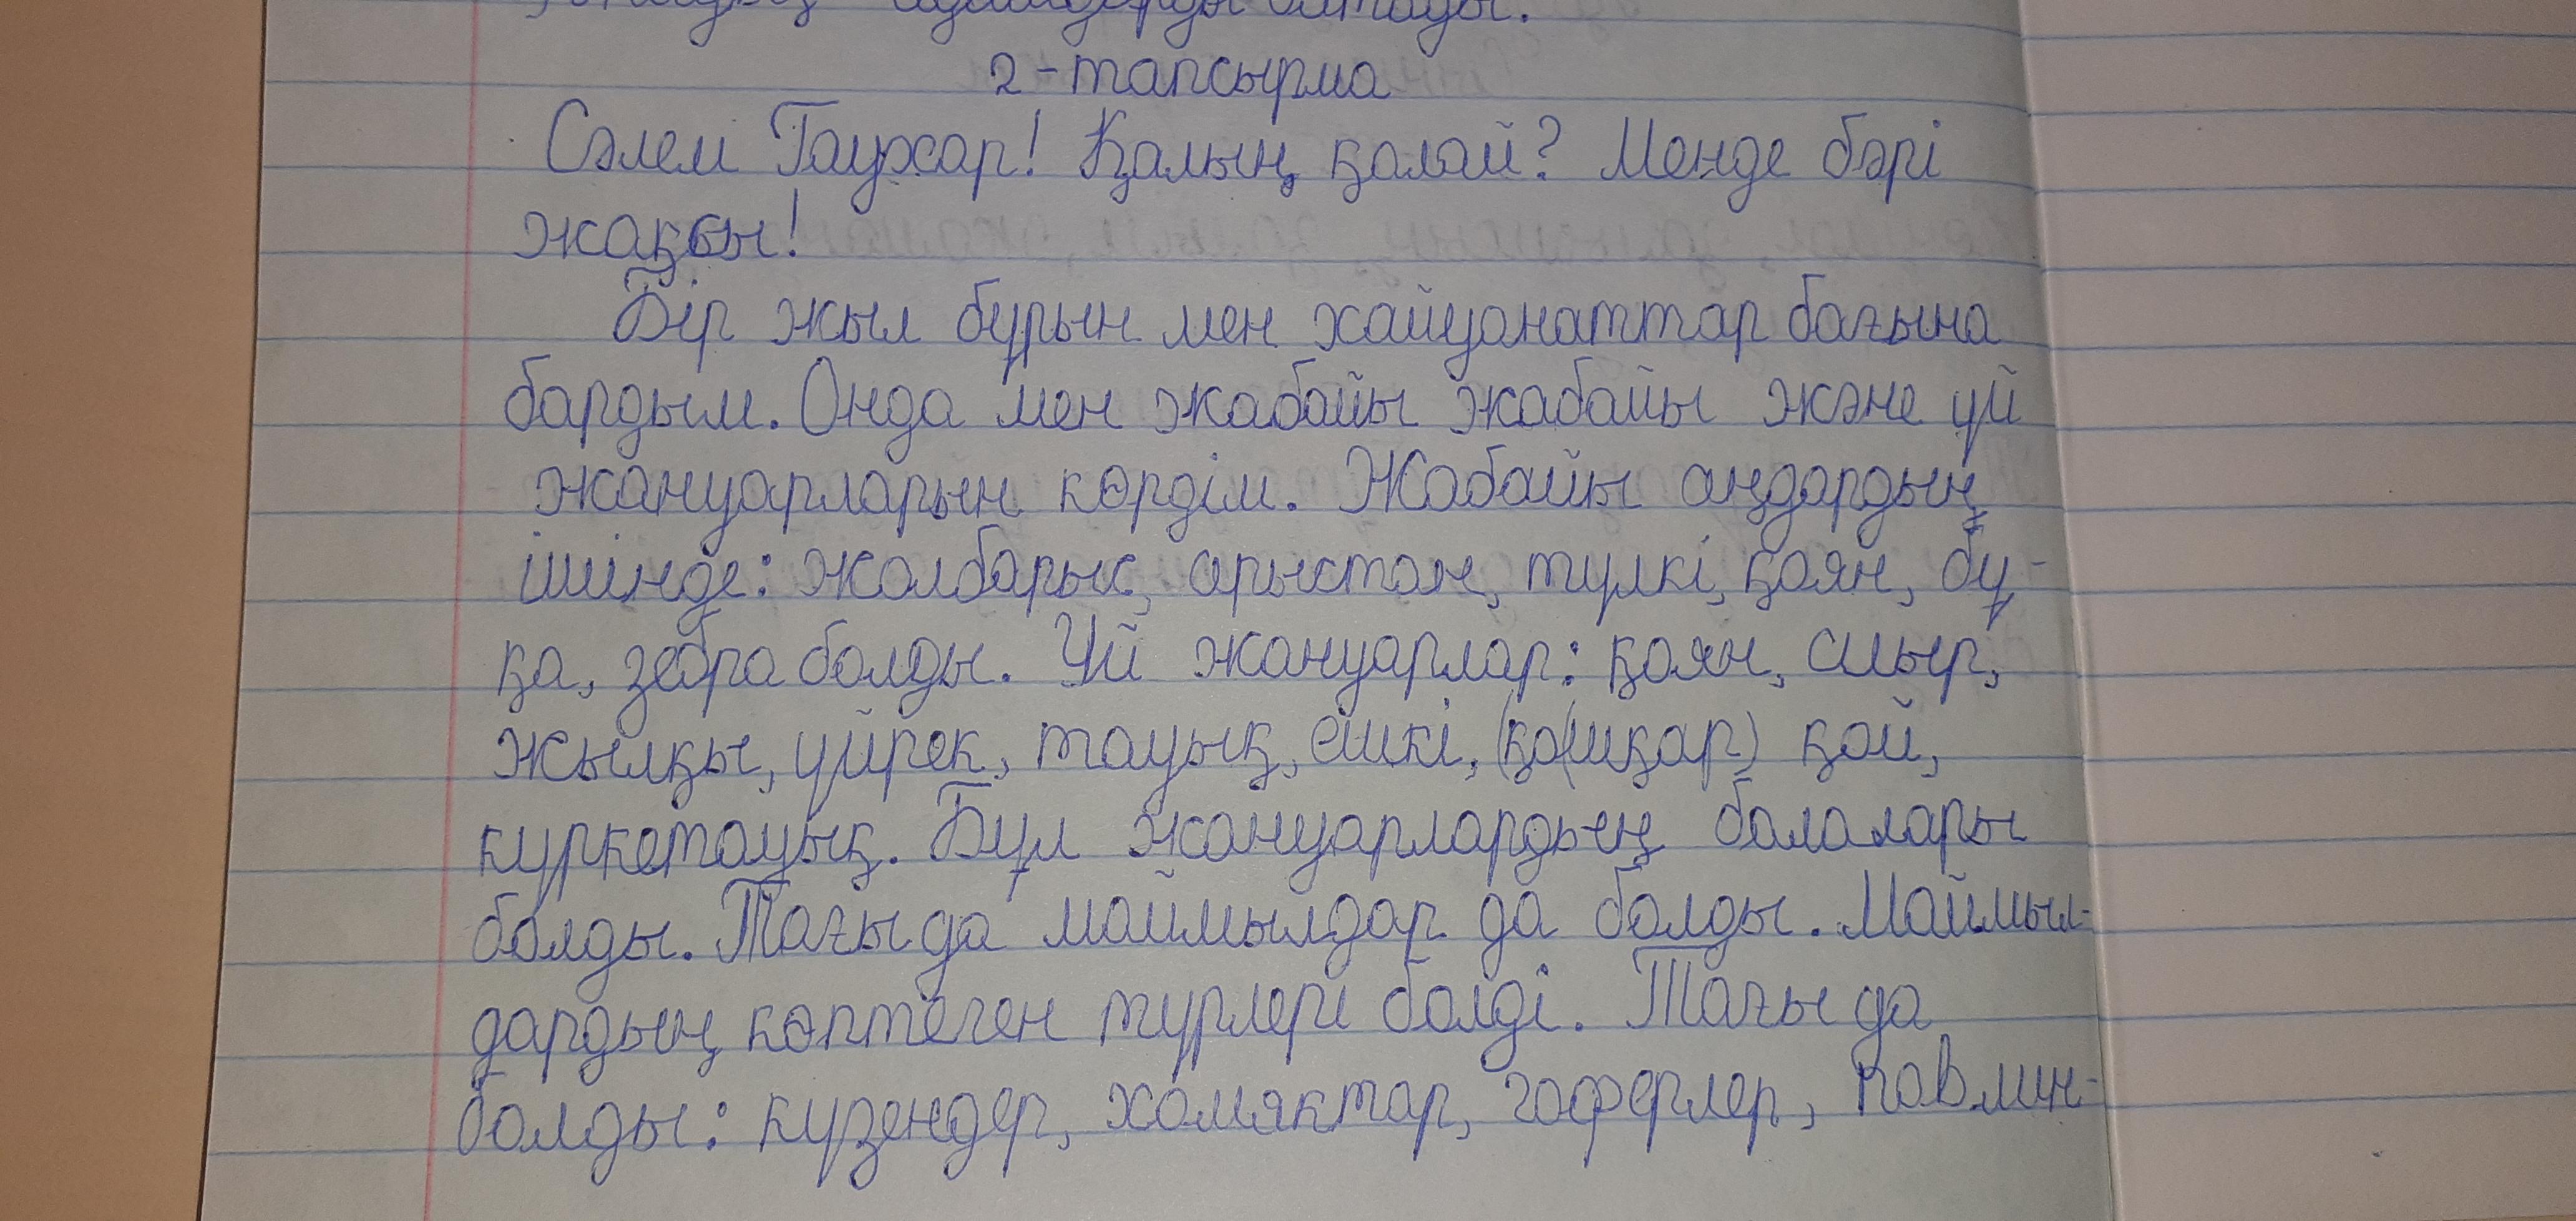 2-тапсырма
Сәлем Гаухар! Қалың қалай? Менде бәрі
жақсы!
Бір жыл бұрын мен хайуанаттар бағына
бардым. Онда мен жабайы жабайы және үй
жануарларын көрдім. Жабайы аңдардың
ішінде: жолбарыс, арыстан, түлкі, қоян, бұ-
қа, зебра болды. Үй жануарлар: қоян, сиыр,
жылқы, үйрек, тауық, ешкі, (қо(шқар) қой,
күркетауық. Бұл жануарлардың балалары
болды. Тағы да маймылдар да болды. Маймыл-
дардың көптеген түрлері болді. Тағы да
болды: күзендер, хомяктар, гоферлер, павлин-